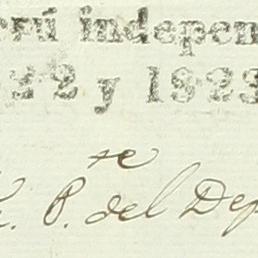 erú indepen
22 y 1823
te
P. del Dep